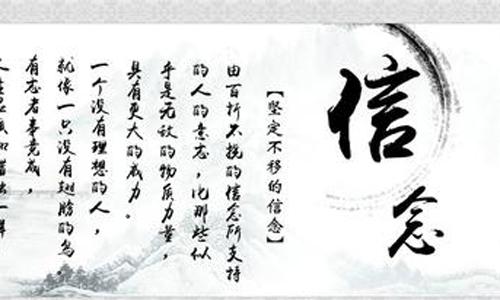 信念
【堅定不移的信念】
由百折不挠的信念所支持
的人的意志，比那些似
乎是无敌的物质力量，
具有更大的威力。
一个没有理想的人，
就像一只没有翅膀的鸟。
有志者事竟成，